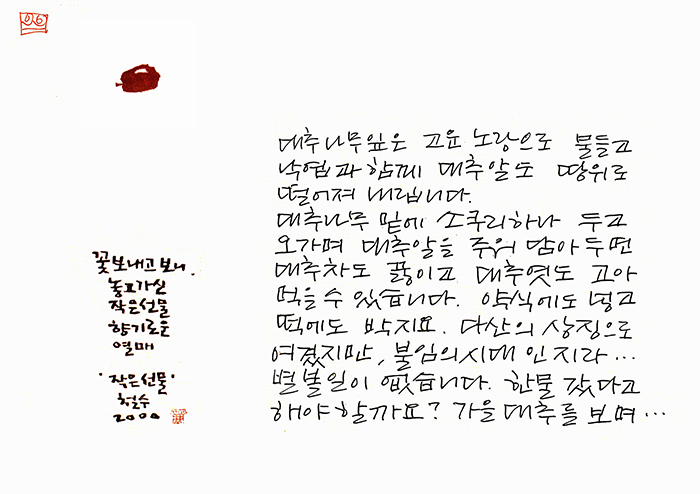 06
대추나무잎은 고운 노랑으로 물들고
낙엽과 함께 대추알도 땅위로
떨어져 내립니다.
대추나무 밑에 소쿠리하나 두고
오가며 대추알을 주워 담아두면
대추차도 끓이고 대추엿도 고아
먹을 수 있습니다. 약식에도 넣고
떡에도 박지요. 다산의 상징으로
여겼지만, 불임의시대 인지라...
별볼일이 없습니다. 한물 갔다고
해야 할까요? 가을 대추를 보며...
꽃보내고보니,
놓고가신
작은선물
향기로운
열매
'작은선물'
철수
2000